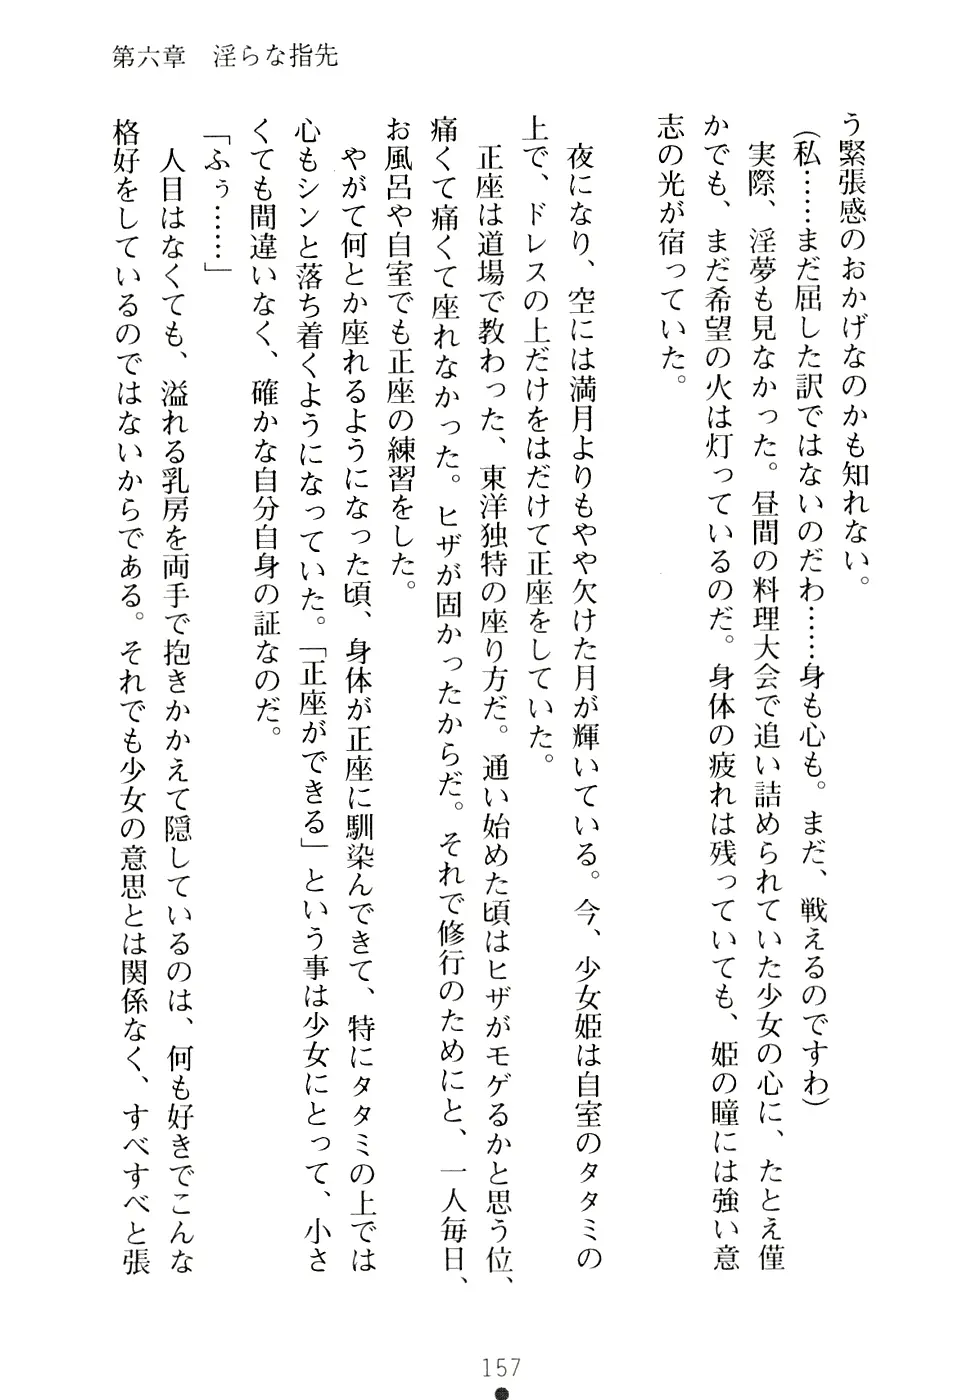 第六章　淫らな指先
う緊張感のおかげなのかも知れない。
（私……まだ屈した訳ではないのだわ……身も心も。まだ、戦えるのですわ）
　実際、淫夢も見なかった。昼間の料理大会で追い詰められていた少女の心に、たとえ僅
かでも、まだ希望の火は灯っているのだ。身体の疲れは残っていても、姫の瞳には強い意
志の光が宿っていた。
　夜になり、空には満月よりもやや欠けた月が輝いている。今、少女姫は自室のタタミの
上で、ドレスの上だけをはだけて正座をしていた。
　正座は道場で教わった、東洋独特の座り方だ。通い始めた頃はヒザがモゲるかと思う位、
痛くて痛くて座れなかった。ヒザが固かったからだ。それで修行のためにと、一人毎日、
お風呂や自室でも正座の練習をした。
　やがて何とか座れるようになった頃、身体が正座に馴染んできて、特にタタミの上では
心もシンと落ち着くようになっていた。「正座ができる」という事は少女にとって、小さ
くても間違いなく、確かな自分自身の証なのだ。
「ふぅ……」
　人目はなくても、溢れる乳房を両手で抱きかかえて隠しているのは、何も好きでこんな
格好をしているのではないからである。それでも少女の意思とは関係なく、すべすべと張
157